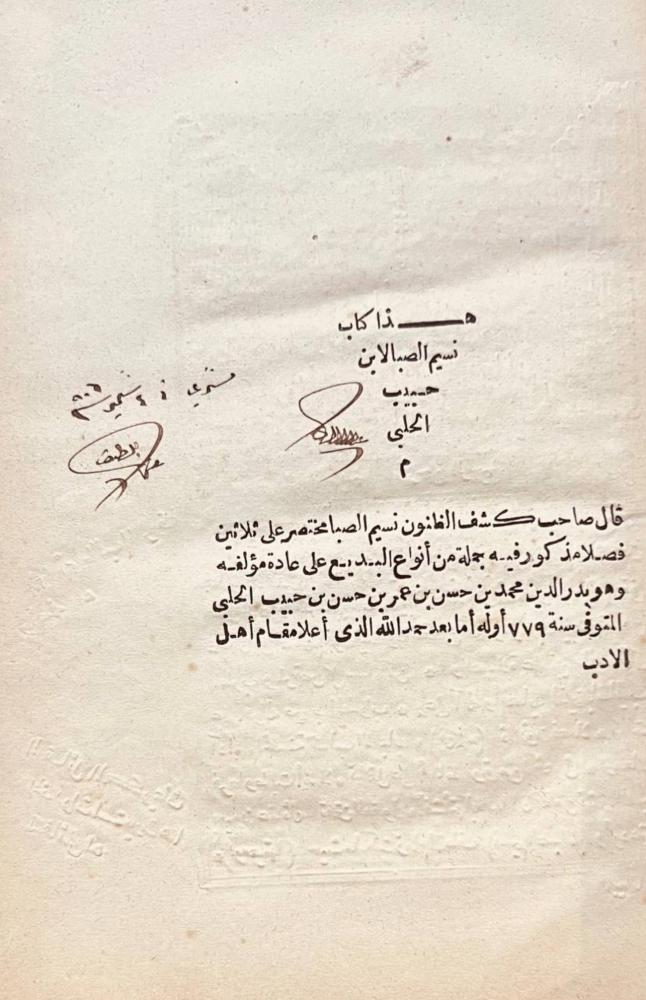 هـذا كتاب
نسيم الصبا لابن
حبيب
الحلبي
م
قال صاحب كشف الظنون نسيم الصبا مختصر على ثلاثين
فصلا مذكور فيه جملة من أنواع البديع على عادة مؤلفه
وهو بدر الدين محمد بن حسن بن عمر بن حسن بن حبيب الحلبي
المتوفى سنة ٧٧٩ أوله أما بعد حمد الله الذى أعلا مقام أهل
الادب